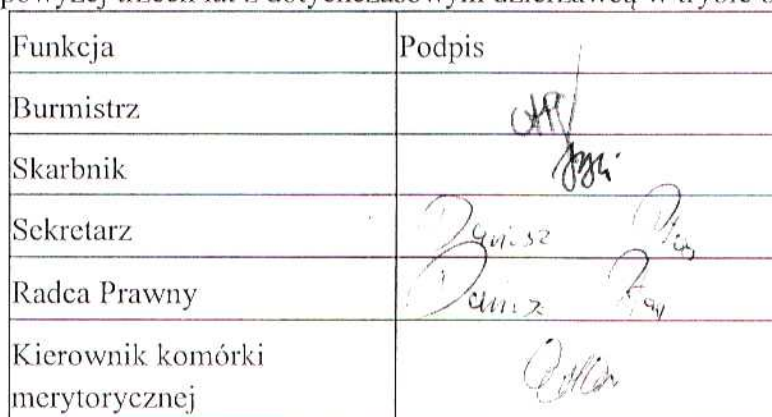 powyżej trzech lat z dotychczasowym dzierżawcą w trybie
Funkcja Podpis
Burmistrz
Skarbnik
Sekretarz Dariusz
Radca Prawny Dariusz
Kierownik komórki
merytorycznej